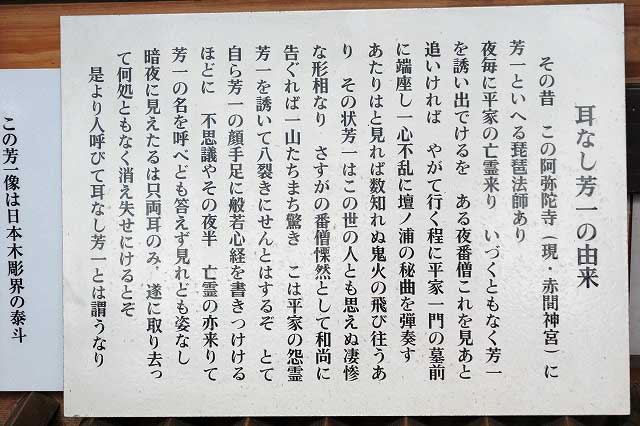 耳なし芳一の由来
その昔　この阿弥陀寺（現・赤間神宮）に
芳一といへる琵琶法師あり
夜毎に平家の亡霊来り　いづくともなく芳一
を誘い出でけるを　ある夜番僧これを見あと
追いければ　やがて行く程に平家一門の墓前
に端座し一心不乱に壇ノ浦の秘曲を弾奏す
あたりはと見れば数知れぬ鬼火の飛び往うあ
り　その状芳一はこの世の人とも思えぬ凄惨
な形相なり　さすがの番僧慄然として和尚に
告ぐれば一山たちまち驚き　こは平家の怨霊
芳一を誘いて八裂きにせんとはするぞ　とて
自ら芳一の顔手足に般若心経を書きつけける
ほどに　不思議やその夜半　亡霊の亦来りて
芳一の名を呼べども答えず見れども姿なし
暗夜に見えたるは只両耳のみ、遂に取り去っ
て何処ともなく消え失せにけるとぞ
是より人呼びて耳なし芳一とは謂うなり
この芳一像は日本木彫界の泰斗